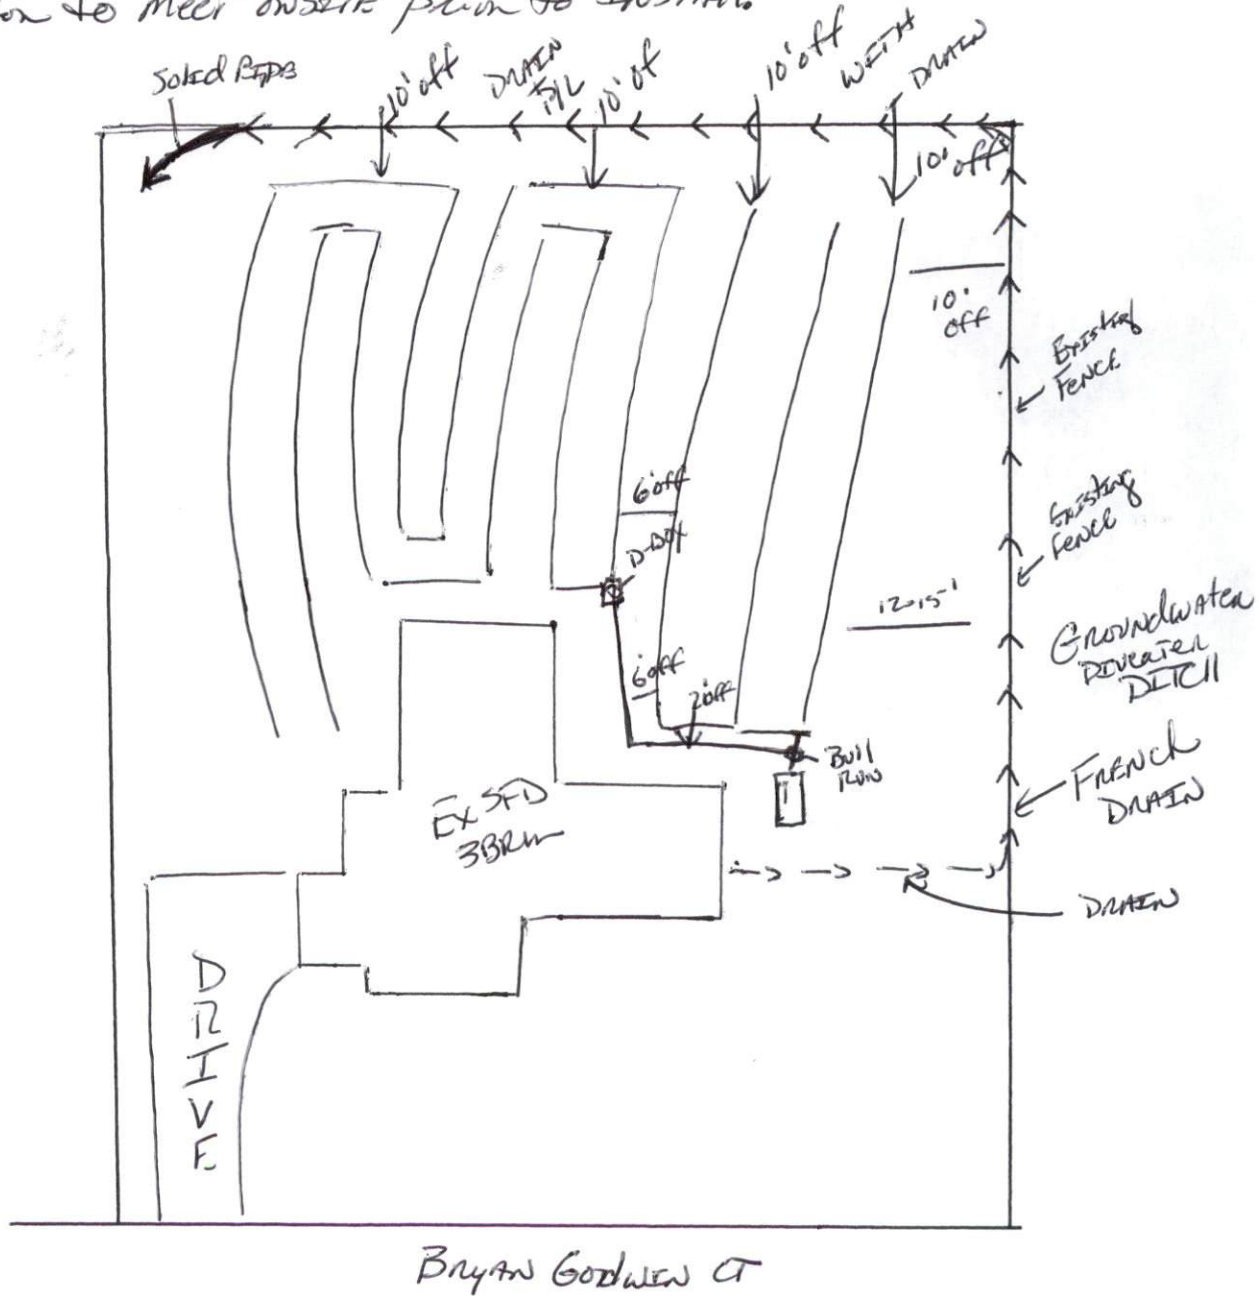 on to meet onsite prior to install.
Solid Pipe
10' off
DRAIN
P/L
10' of
10' off
WITH
DRAIN
10' off
10'
off
Existing
Fence
6' off
D-BOX
Existing
Fence
12-15'
GROUNDWATER
DIVERTER
DITCH
6' off
2' off
Bull
Run
FRENCH
DRAIN
Ex SFD
3BRM
DRAIN
DRIVE
BRYAN GODWIN CT